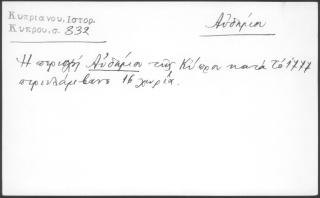 Κυπριανου, Ιστορ.
Κυπρου. σ. 332
Αὐδήμιου
Ἡ περιοχή Αὐδήμιου τῆς Κύπρου κατά τό 1777
περιελάμβανε 16 χωριά.